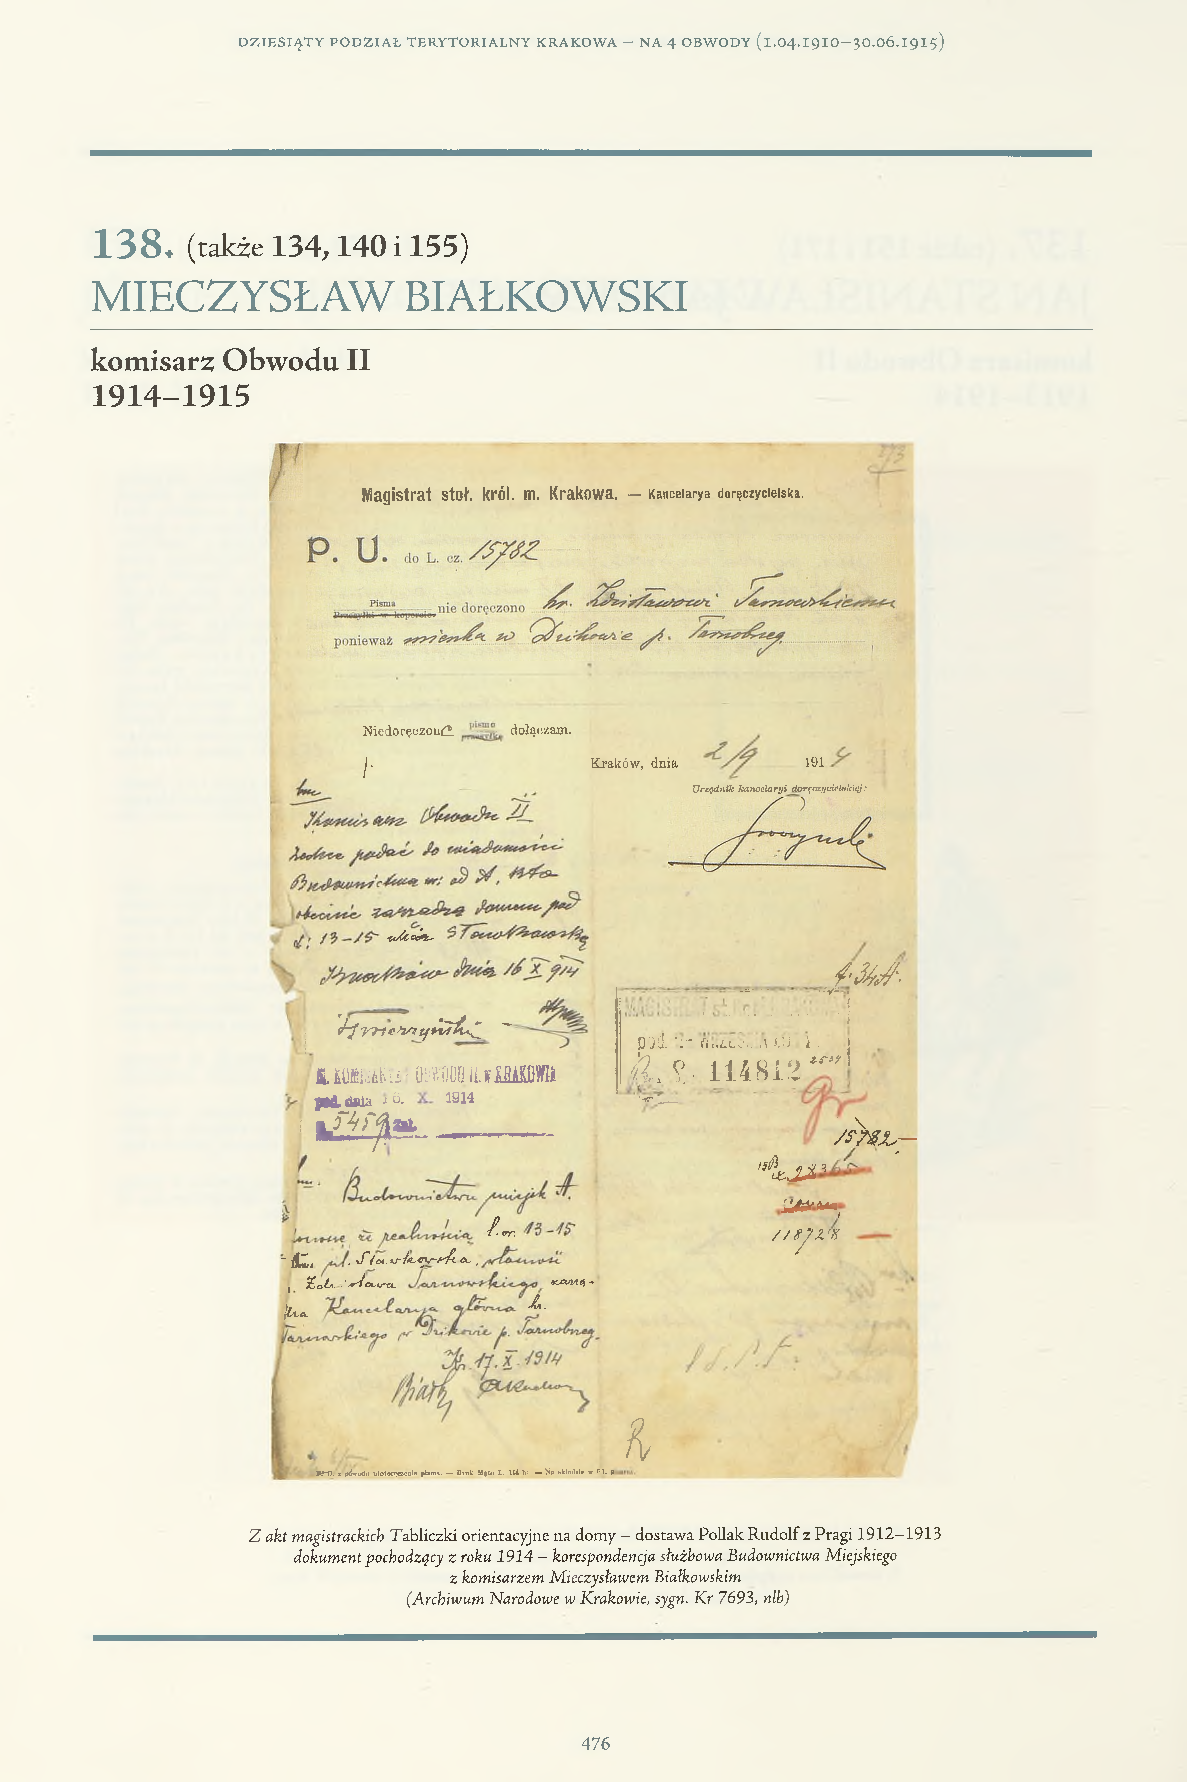 DZIESIĄTY PODZIAŁ TERYTORIALNY KRAKOWA – NA 4 OBWODY (1.04.1910–30.06.1915)
138. (także 134, 140 i 155)
MIECZYSŁAW BIAŁKOWSKI
komisarz Obwodu II
1914–1915
Magistrat stoł. król. m. Krakowa. — Kancelarya doręczycielska.
P. U. do L. cz. 15782
Pisma
Przesyłki w kopercie nie doręczono hr. Zdzisławowi Tarnowskiemu
ponieważ mieszka w Dzikowie p. Tarnobrzeg
Niedoręczone pismo dołączam.
Kraków, dnia 2/9 1914
Urzędnik kancelaryi doręczycielskiej:
Komisarz Obwodu II
zechce podać do wiadomości
Budownictwa m: od A, kto
obecnie zarządza domem pod
l: 13–15 ulica Sławkowska
Kraków dnia 16 X 914
K. KOMISARYAT OBWODU II. w KRAKOWIE
pod. dnia 16. X. 1914
5459
MAGISTRAT
pod. WRZEŚNIA
114812
15782
28365
11872/8
Budownictwu miejsk A.
że realnością l. or. 13-15
ul. Sławkowska, własność
Zdzisława Tarnowskiego, zarzą-
dza Kancelarya główna hr.
Tarnowskiego w Dzikowie p. Tarnobrzeg.
Kr. 17. X. 1914
R
Z akt magistrackich Tabliczki orientacyjne na domy – dostawa Pollak Rudolf z Pragi 1912–1913
dokument pochodzący z roku 1914 – korespondencja służbowa Budownictwa Miejskiego
z komisarzem Mieczysławem Białkowskim
(Archiwum Narodowe w Krakowie, sygn. Kr 7693, nlb)
476